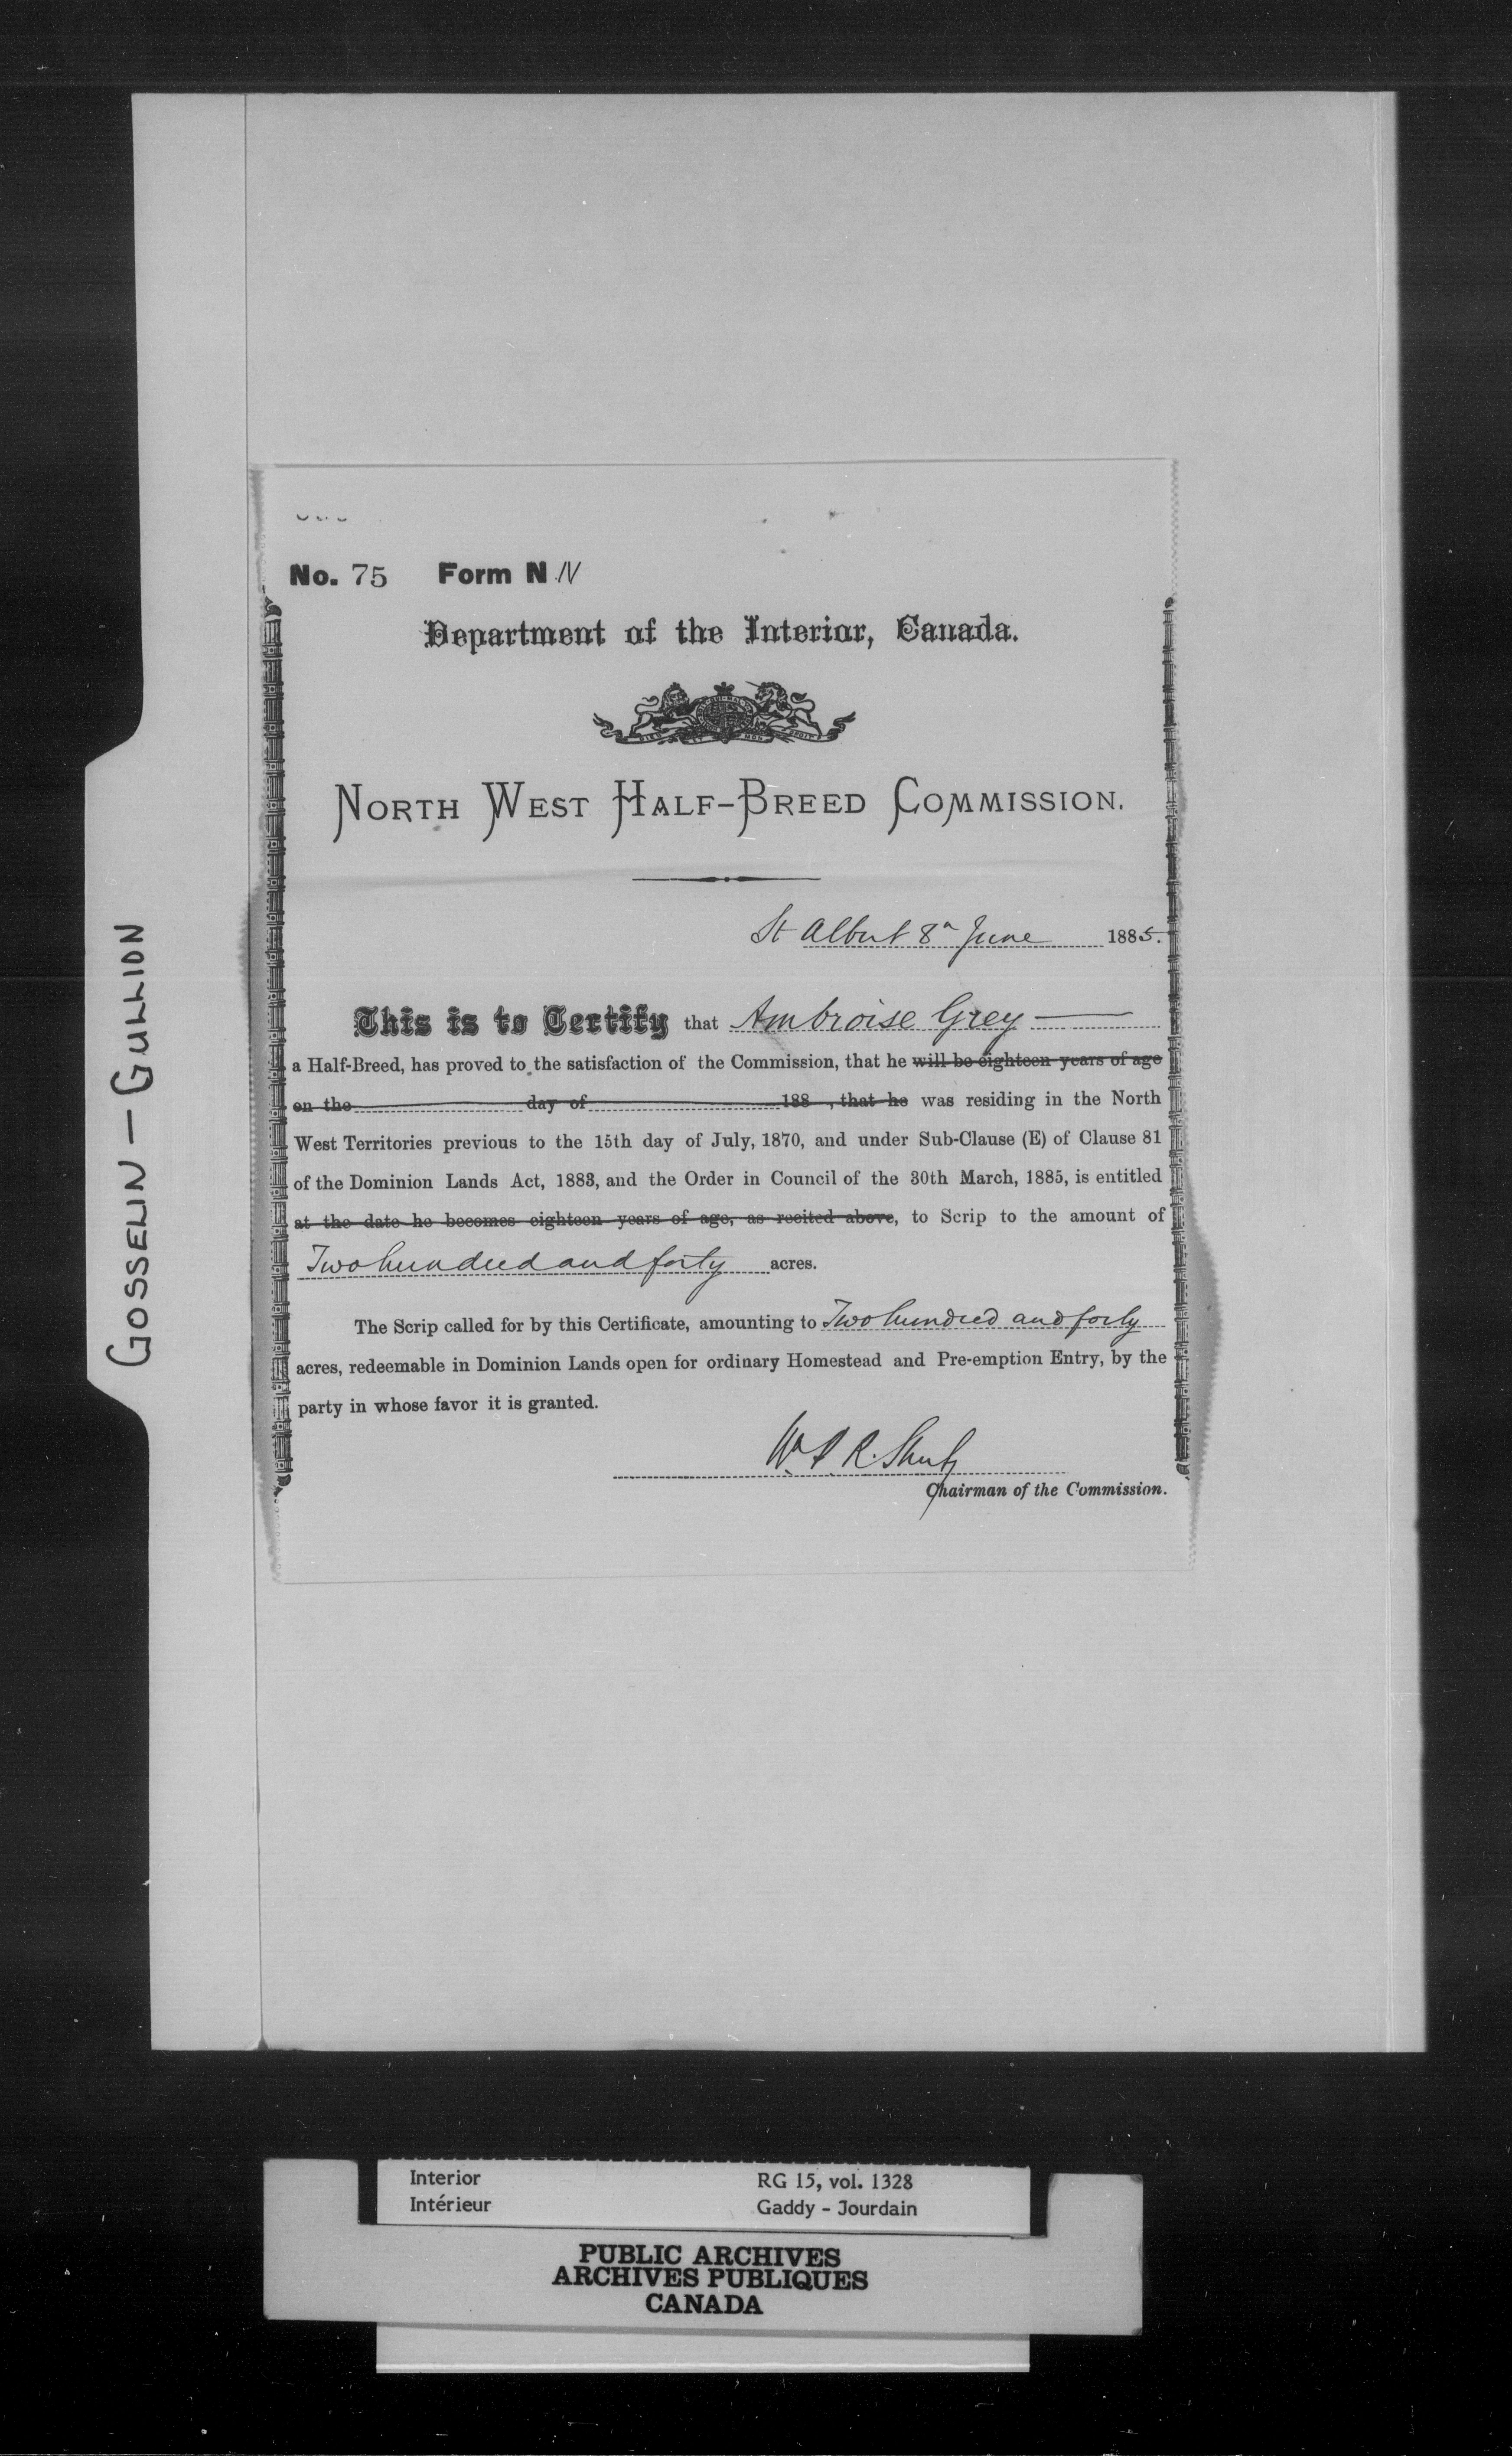 GOSSELIN — GULLION
No. 75 Form N N
Department of the Interior, Canada.
NORTH WEST HALF-BREED COMMISSION.
St Albert 8th June 1885.
This is to Certify that Ambroise Grey
a Half-Breed, has proved to the satisfaction of the Commission, that he will be eighteen years of age
on the day of 188 , that he was residing in the North
West Territories previous to the 15th day of July, 1870, and under Sub-Clause (E) of Clause 81
of the Dominion Lands Act, 1883, and the Order in Council of the 30th March, 1885, is entitled
at the date he becomes eighteen years of age, as recited above, to Scrip to the amount of
Two hundred and forty acres.
The Scrip called for by this Certificate, amounting to Two hundred and forty
acres, redeemable in Dominion Lands open for ordinary Homestead and Pre-emption Entry, by the
party in whose favor it is granted.
R. Street
Chairman of the Commission.
Interior RG 15, vol. 1328
Intérieur Gaddy - Jourdain
PUBLIC ARCHIVES
ARCHIVES PUBLIQUES
CANADA